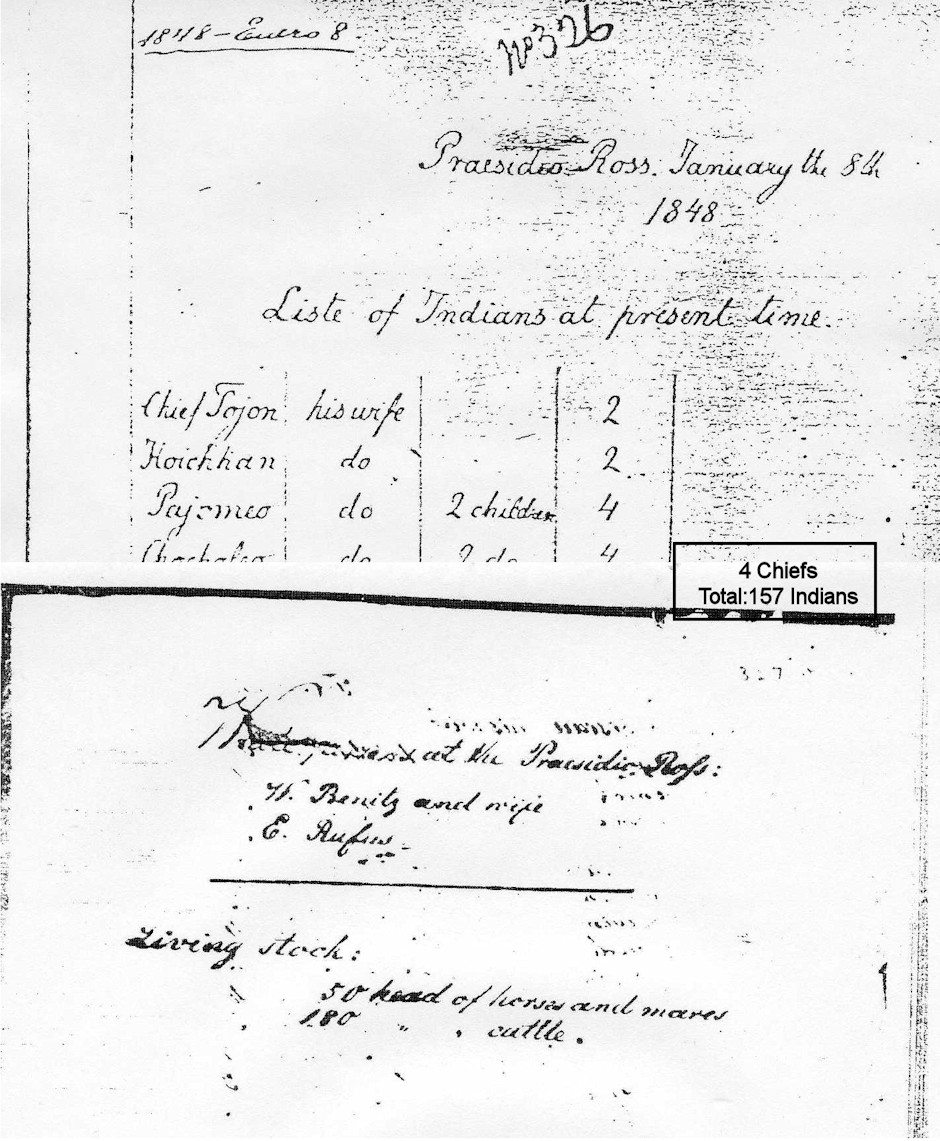 1848 - Enero 8
No 326
Praesidio Ross. January the 8th
1848
Liste of Indians at present time.
Chief Tojon his wife 2
Hoichhan do 2
Pajomeo do 2 children 4
do 2 do 4
4 Chiefs
Total:157 Indians
327
at the Praesidio Ross:
W. Benitz and wife
E. Rufus
Living stock:
50 head of horses and mares
180 " " cattle.